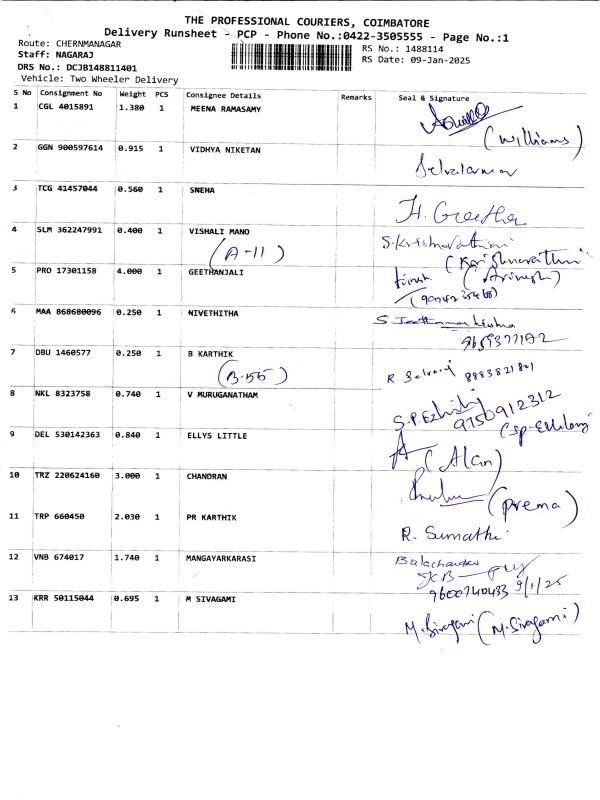 THE PROFESSIONAL COURIERS, COIMBATORE
Delivery Runsheet - PCP - Phone No.:0422-3505555 - Page No.:1
Route: CHERNMANAGAR
Staff: NAGARAJ
DRS No.: DCJB148811401
Vehicle: Two Wheeler Delivery
RS No.: 1488114
RS Date: 09-Jan-2025
S No Consignment No Weight PCS Consignee Details Remarks Seal & Signature
1 CGL 4015891 1.380 1 MEENA RAMASAMY
(Williams)
2 GGN 900597614 0.915 1 VIDHYA NIKETAN
3 TCG 41457044 0.560 1 SNEHA
H. Greetha
4 SLM 362247991 0.400 1 VISHALI MANO
(A-11)
5 PRO 17301158 4.000 1 GEETHANJALI
6 MAA 868680096 0.250 1 NIVETHITHA
7 DBU 1460577 0.250 1 B KARTHIK
(B-56)
R Selvaraj 8883821801
8 NKL 8323758 0.740 1 V MURUGANATHAM
9750912312
9 DEL 530142363 0.840 1 ELLYS LITTLE
(Alan)
10 TRZ 220624160 3.000 1 CHANDRAN
(Prema)
11 TRP 660450 2.030 1 PR KARTHIK
R. Sumathi
12 VNB 674017 1.740 1 MANGAYARKARASI
Balachander
9600740433 9/1/25
13 KRR 50115044 0.695 1 M SIVAGAMI
M. Sivagami (M. Sivagami)